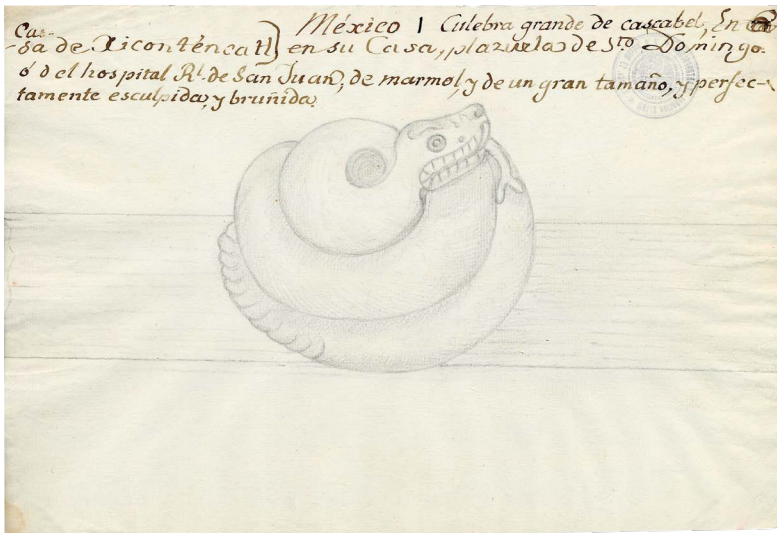 México | Culebra grande de cascabel, En
Ca-
-sa de Xicontêncatl} en su Casa, plazuela de Sto. Domingo.
ó del hospital Rl. de San Juan, de marmol, y de un gran tamaño, y perfec-
tamente esculpida, y bruñida.